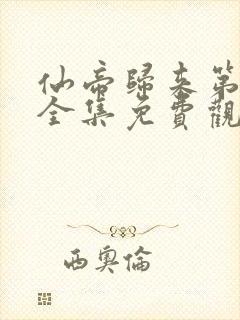 仙帝歸來第
全集免費觀
西奧倫